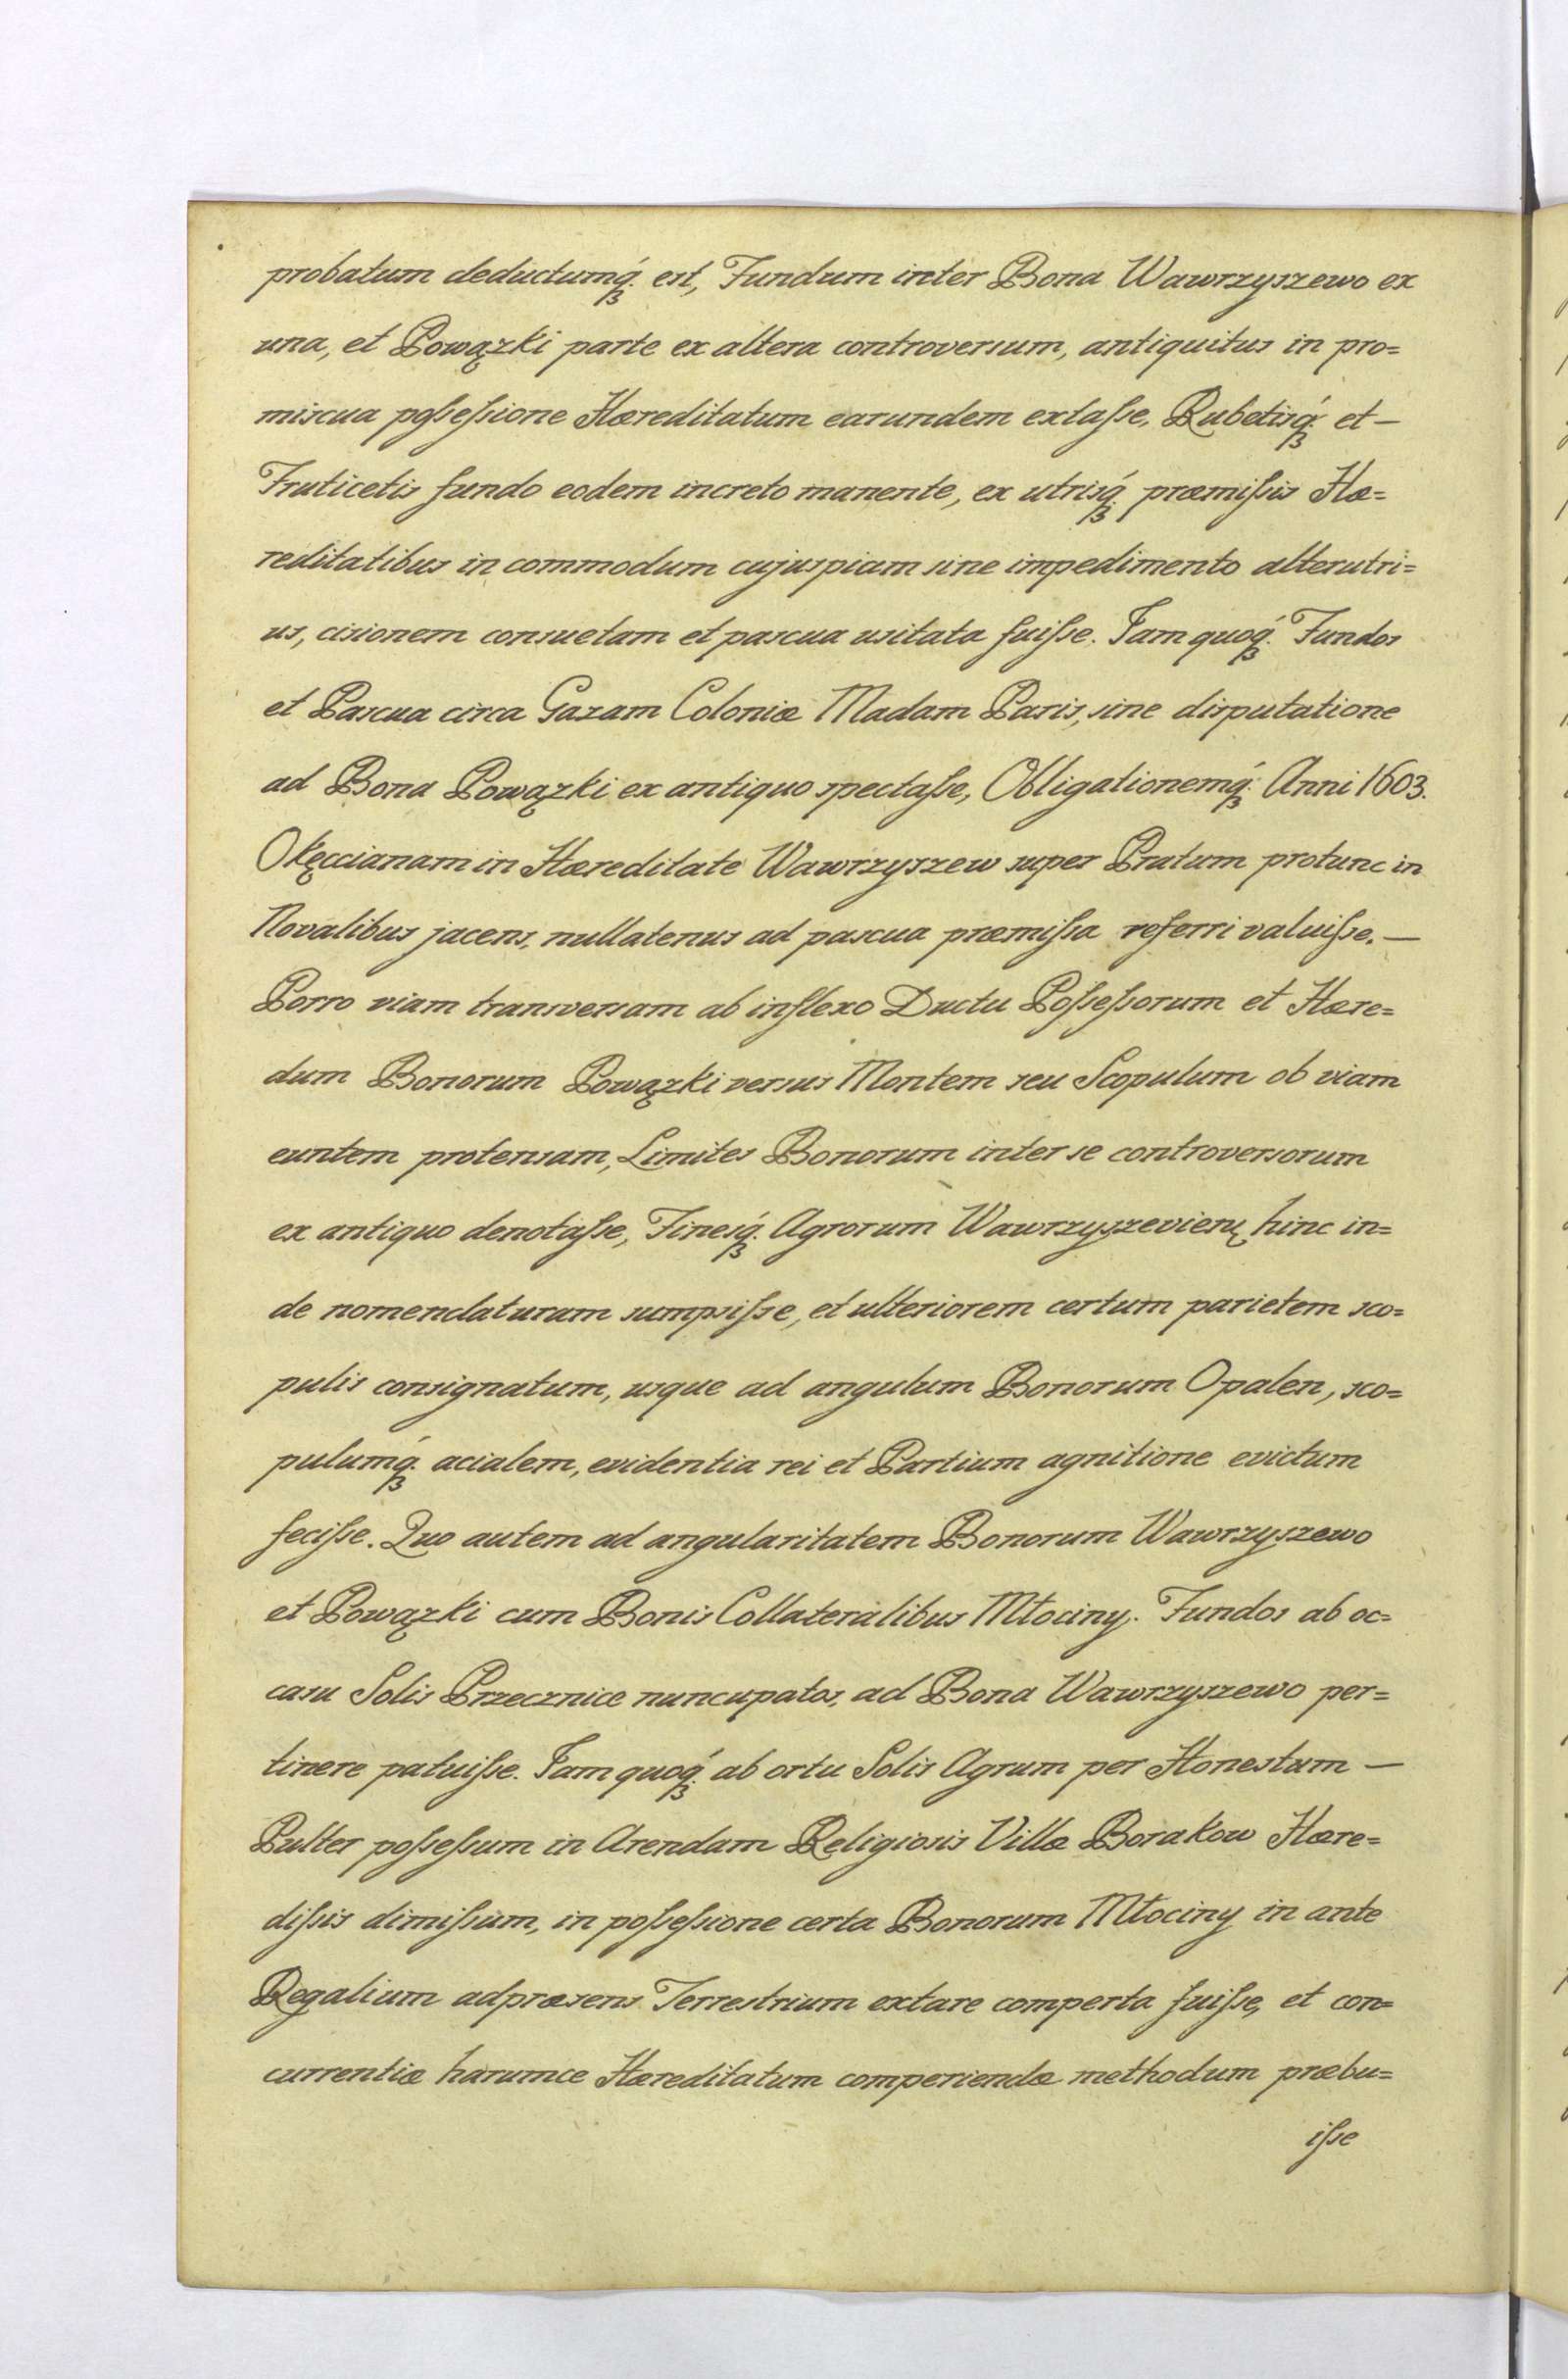 probatum deductumq́ꝫ. est, Fundum inter Bona Wawrzyszewo ex
una, et Powązki parte ex altera controversum, antiquitus in pro=
miscua poſseſsione Hæreditatum earundem extaſse, Rubetisq́ꝫ. et —
Fruticetis fundo eodem increto manente, ex utrisq́ꝫ. præmiſsis Hæ=
reditatibus in commodum cujuspiam sine impedimento alterutri=
us, cisionem consuetam et pascua usitata fuiſse. Jam quoq́ꝫ. Fundos
et Pascua circa Gazam Coloniæ Madam Paris, sine disputatione
ad Bona Powązki ex antiquo spectaſse, Obligationemq́ꝫ. Anni 1603.
Okęccianam in Hæreditate Wawrzyszew super Pratum protunc in
Novalibus jacens, nullatenus ad pascua præmiſsa referri valuiſse. —
Porro viam transversam ab inflexo Ductu Poſseſsorum et Hære=
dum Bonorum Powązki versus Montem seu Scopulum ob viam
euntem protensam, Limites Bonorum inter se controversorum
ex antiquo denotaſse, Finesq́ꝫ. Agrorum Wawrzyszevien, hinc in=
de nomenclaturam sumpsiſse, et ulteriorem certum parietem sco=
pulis consignatum, usque ad angulum Bonorum Opalen, sco=
pulumq́ꝫ. acialem, evidentia rei et Partium agnitione evictum
feciſse. Quo autem ad angularitatem Bonorum Wawrzyszewo
et Powązki cum Bonis Collateralibus Młociny. Fundos ab oc=
casu Solis Przecznice nuncupatos, ad Bona Wawrzyszewo per=
tinere patuiſse. Jam quoq́ꝫ. ab ortu Solis Agrum per Honestum —
Pulter poſseſsum in Arendam Religiosis Villæ Borakow Hære=
diſsis dimiſsum, in poſseſsione certa Bonorum Młociny in ante
Regalium adpræsens Terrestrium extare comperta fuiſse, et con=
currentiæ harumce Hæreditatum comperiendæ methodum præbu=
iſse